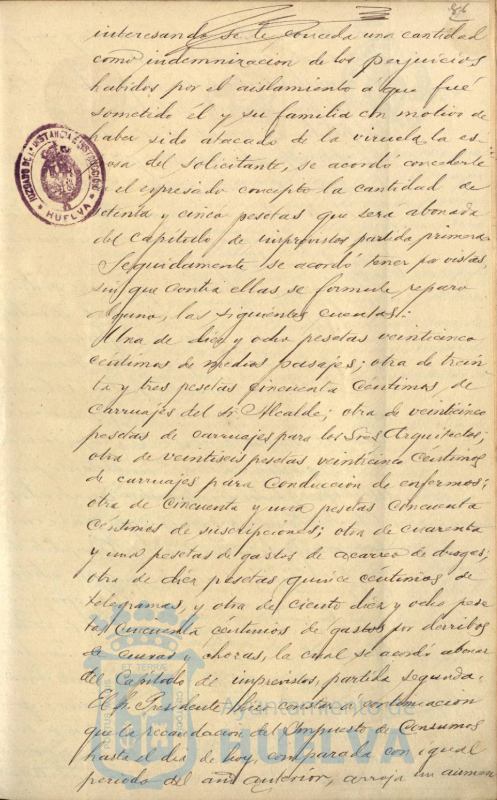 86
interesando se le conceda una cantidad
como indemnización de los perjuicios
habidos por el aislamiento á que fué
sometido él y su familia con motivo de
haber sido atacado de la viruela la es-
posa del solicitante, se acordó concederle
el expresado concepto la cantidad de
y cinco pesetas que será abonada
del capítulo de imprevistos partida primera.
Seguidamente se acordó tener por vistas,
sin que contra ellas se formule reparo
alguno, las siguientes cuentas:
Una de diez y ocho pesetas veinticinco
céntimos de medios pasajes; otra de trein
ta y tres pesetas cincuenta céntimos de
carruajes del Sr. Alcalde; otra de veinticinco
pesetas de carruajes para los Sres Arquitectos;
otra de veintiseis pesetas veinticinco céntimos
de carruajes para conducción de enfermos;
otra de cincuenta y una pesetas cincuenta
céntimos de suscripciones; otra de cuarenta
y una pesetas de gastos de acarreo de drogas;
otra de diez pesetas quince céntimos de
telegramas, y otra de ciento diez y ocho pese
tas cincuenta céntimos de gastos por derribos
de cuevas y chozas, la cual se acordó abonar
del Capítulo de imprevistos, partida segunda.
El Sr. Presidente hizo constar á continuación
que la recaudación del Impuesto de Consumos
hasta el día de hoy, comparada con igual
periodo del año anterior, arroja un aumen
JUZGADO DE 1ª INSTANCIA E INSTRUCCION
HUELVA
Ayuntamiento de
HUELVA